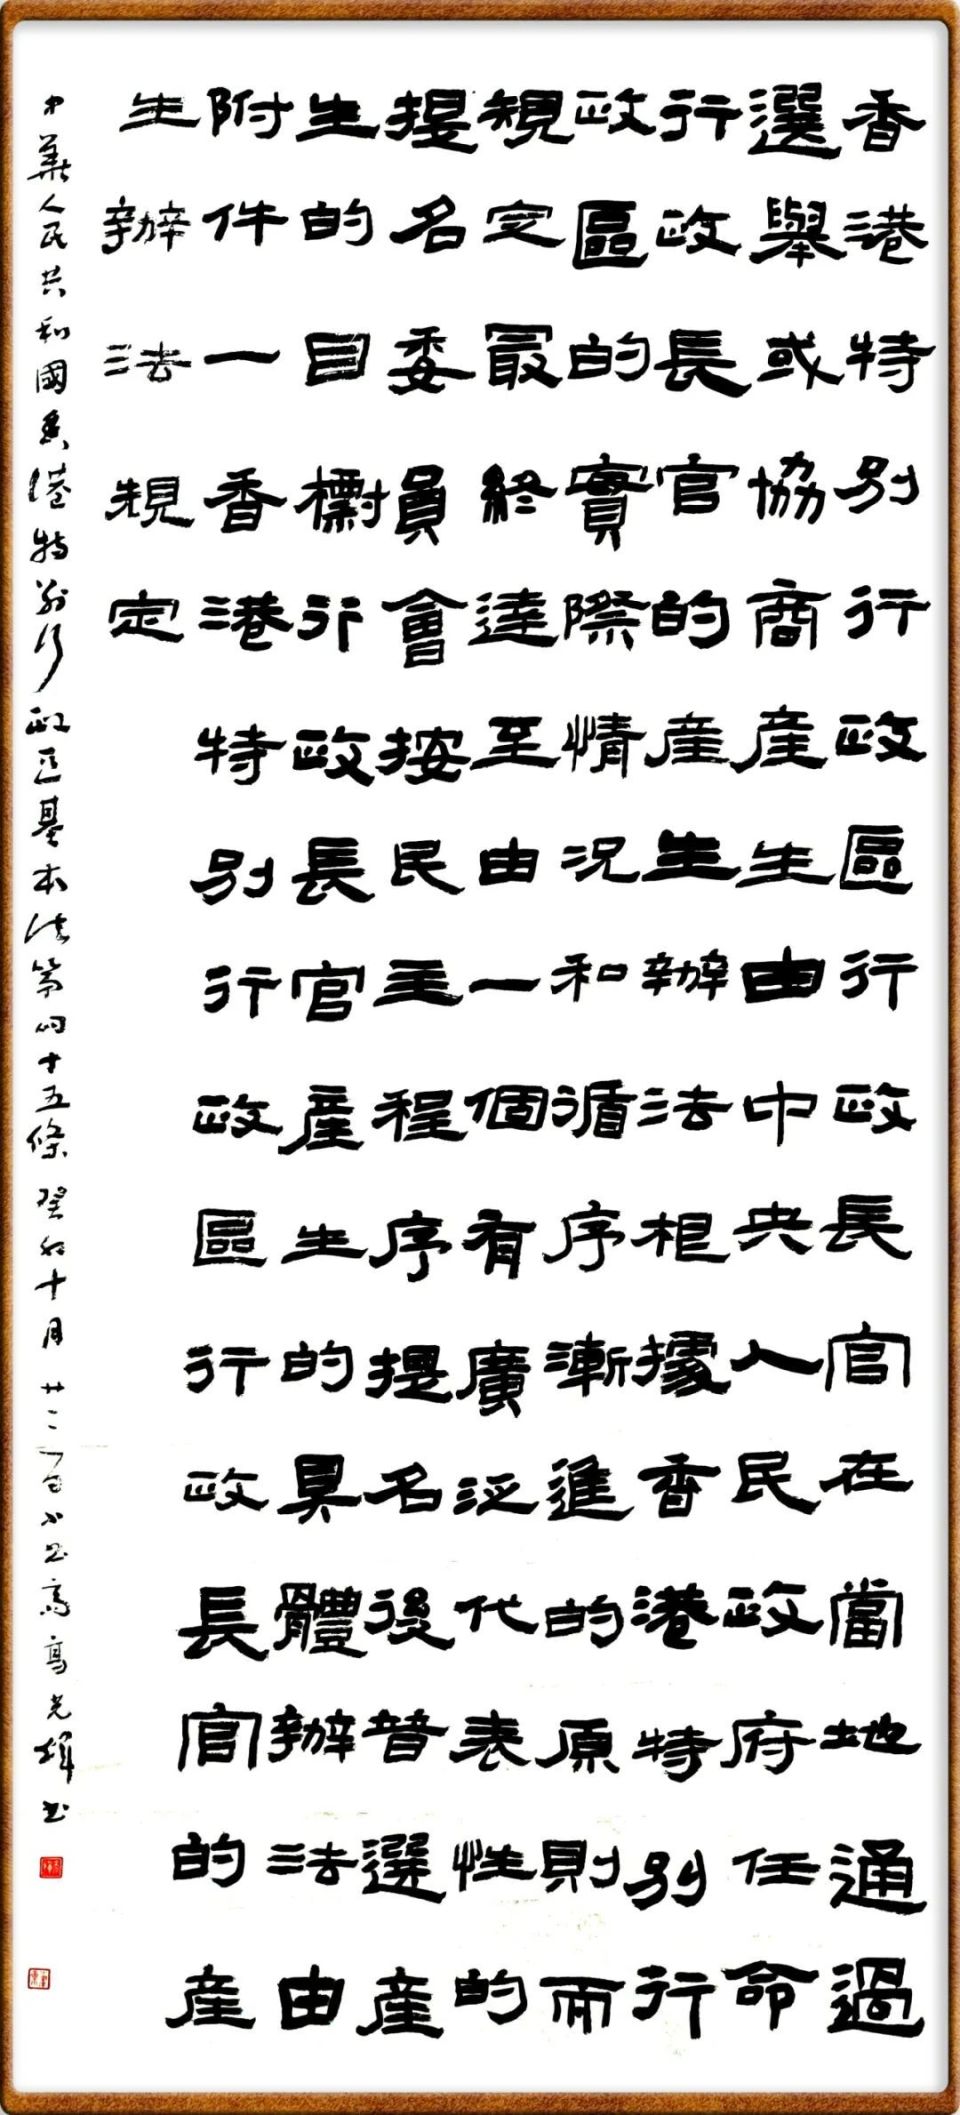 香港特別行政區行政長官在當地通過
選舉或協商產生由中央人民政府任命
行政長官的產生辦法根據香港特別行
政區的實際情況和循序漸進的原則而
規定最終達至由一個有廣泛代表性的
提名委員會按民主程序提名後普選產
生的目標行政長官產生的具體辦法由
附件一香港特別行政區行政長官的產
生辦法規定
中華人民共和國香港特別行政區基本法第四十五條 癸卯十月 高光輝書